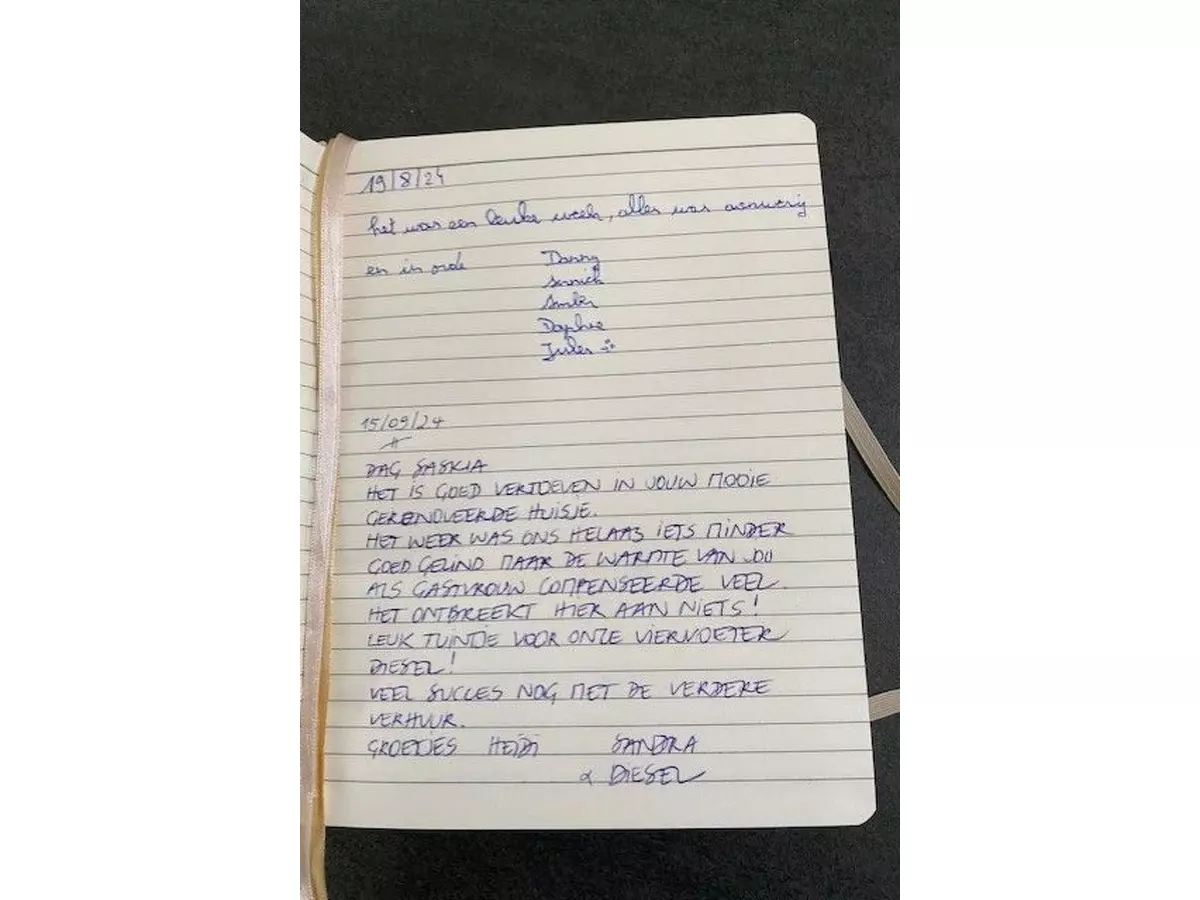 19/8/24
het was een leuke week, alles was aanwezig
en in orde
Danny
Amber
Daphne
Jules
15/09/24
DAG SASKIA
HET IS GOED VERTOEVEN IN JOUW MOOIE
GERENOVEERDE HUISJE.
HET WEER WAS ONS HELAAS IETS MINDER
GOED GEZIND MAAR DE WARMTE VAN JOU
ALS GASTVROUW COMPENSEERDE VEEL.
HET ONTBREEKT HIER AAN NIETS!
LEUK TUINTJE VOOR ONZE VIERVOETER
DIESEL!
VEEL SUCCES NOG MET DE VERDERE
VERHUUR.
GROETJES HEIDI SANDRA
& DIESEL